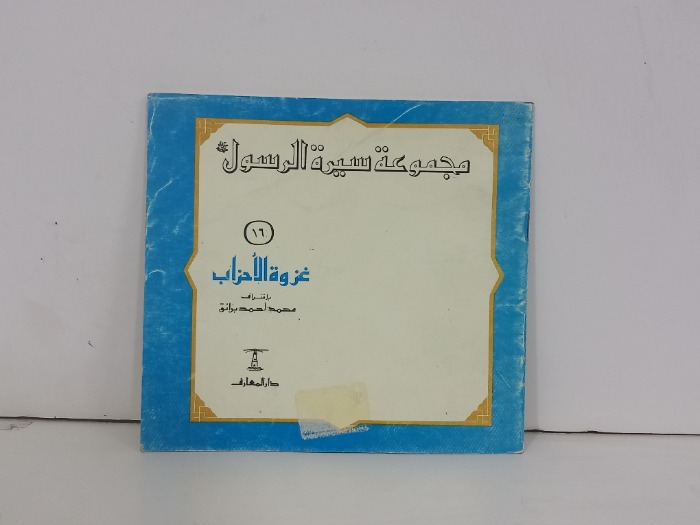 مجموعة سيرة الرسول ﷺ
١٦
غزوة الأحزاب
بإشراف
محمد أحمد برانق
دار المعارف